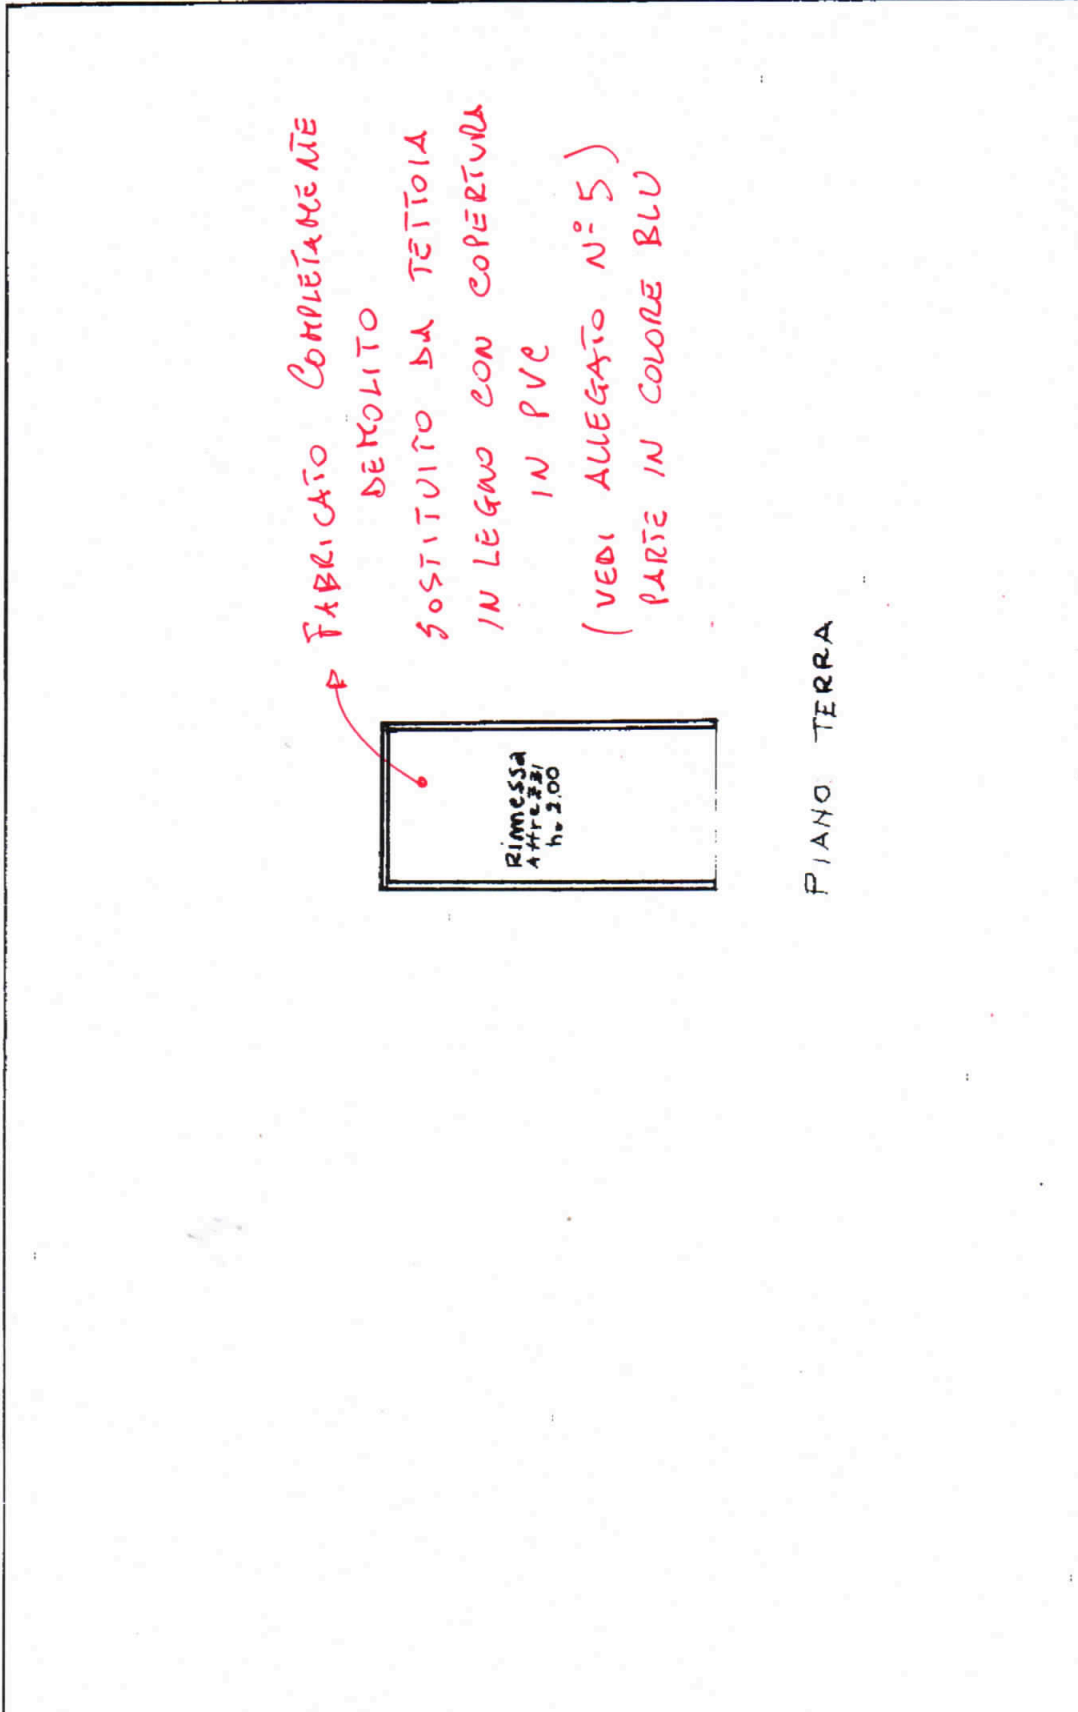 FABRICATO COMPLETAMENTE
DEMOLITO
SOSTITUITO DA TETTOIA
IN LEGNO CON COPERTURA
IN PVC
(VEDI ALLEGATO N° 5)
PARTE IN COLORE BLU
Rimessa
Attrezzi
h= 2.00
PIANO TERRA